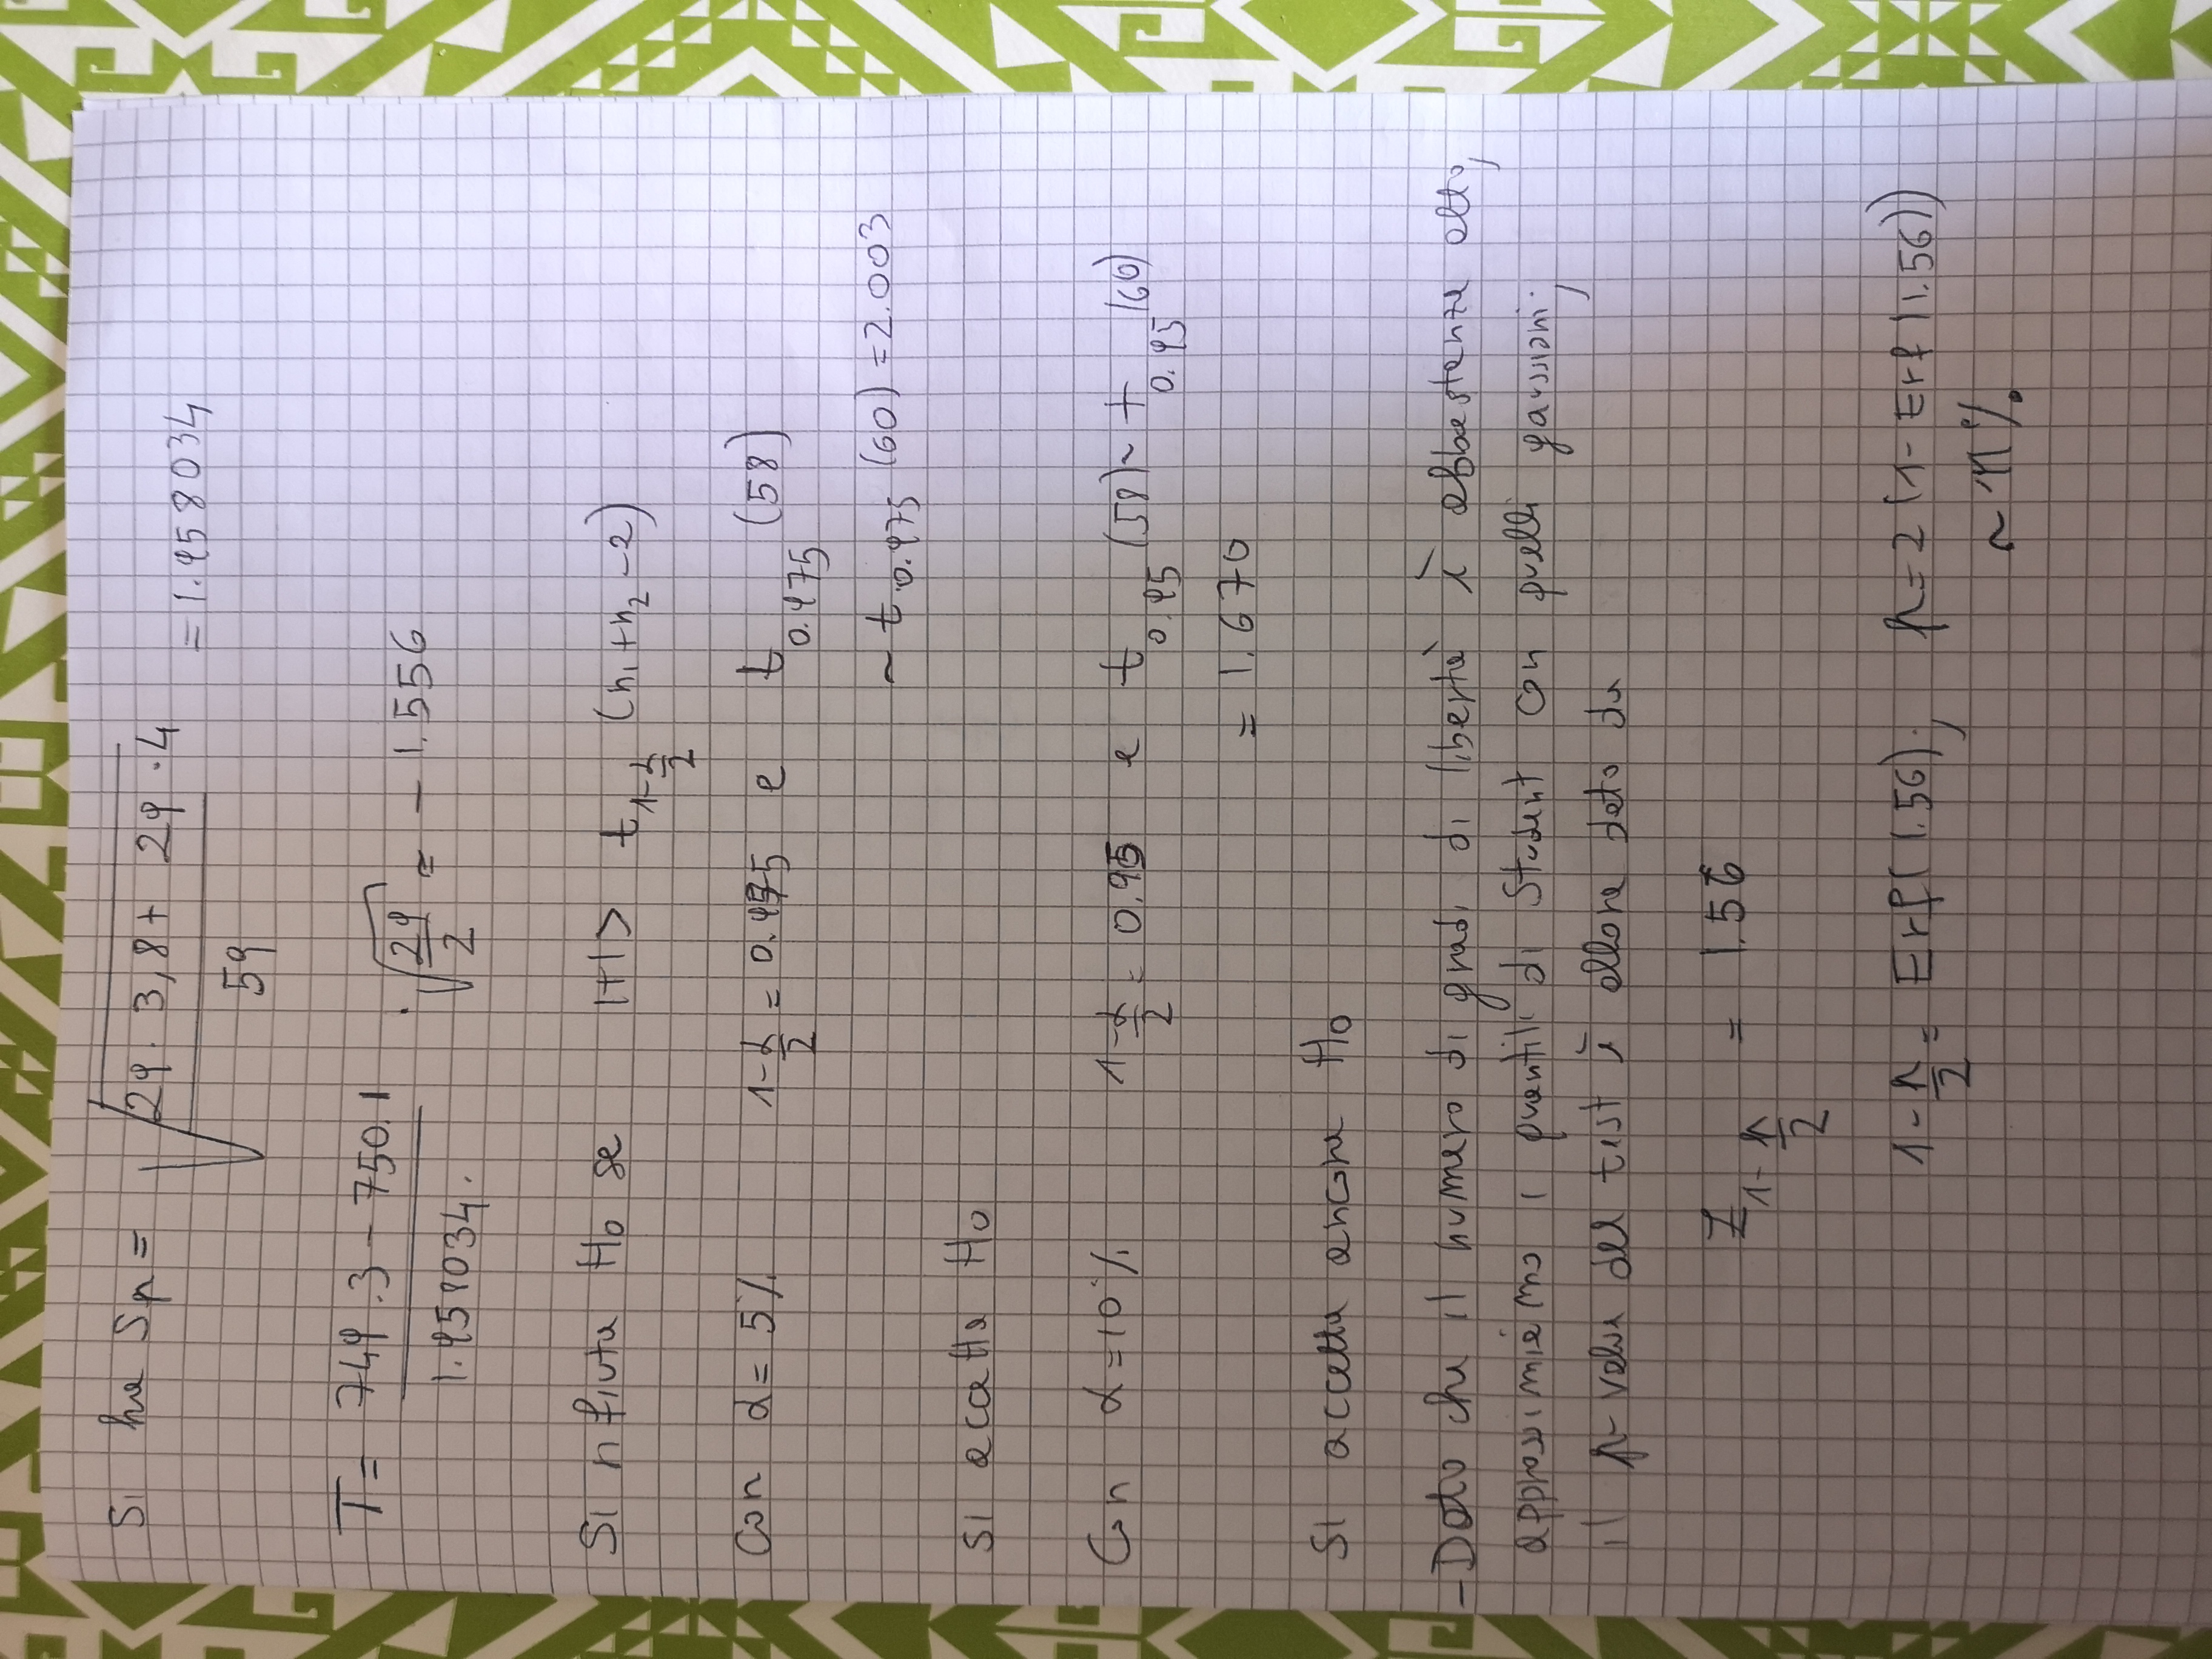 Si ha Sp = √(29 · 3,8 + 29 · 4 / 59) = 1.958034
T = 749.3 - 750.1 / 1.958034 · √(29/2) = - 1.556
Si rifiuta H₀ se |t| > t_{1-α/2} (n₁ + n₂ - 2)
Con α = 5% 1-α/2 = 0.975 e t_{0.975} (58)
~ t_{0.975} (60) = 2.003
si accetta H₀
Con α = 10% 1-α/2 = 0.95 e t_{0.95} (58) ~ t_{0.95} (60)
= 1.670
si accetta ancora H₀
- Dato che il numero di gradi di libertà è abbastanza alto,
approssimiamo i quantili di Student con quelli gaussiani;
il p-value del test è allora dato da
Z_{1-p/2} = 1.56
1-p/2 = Erf(1.56); p = 2(1- Erf(1.56))
~ 11%.